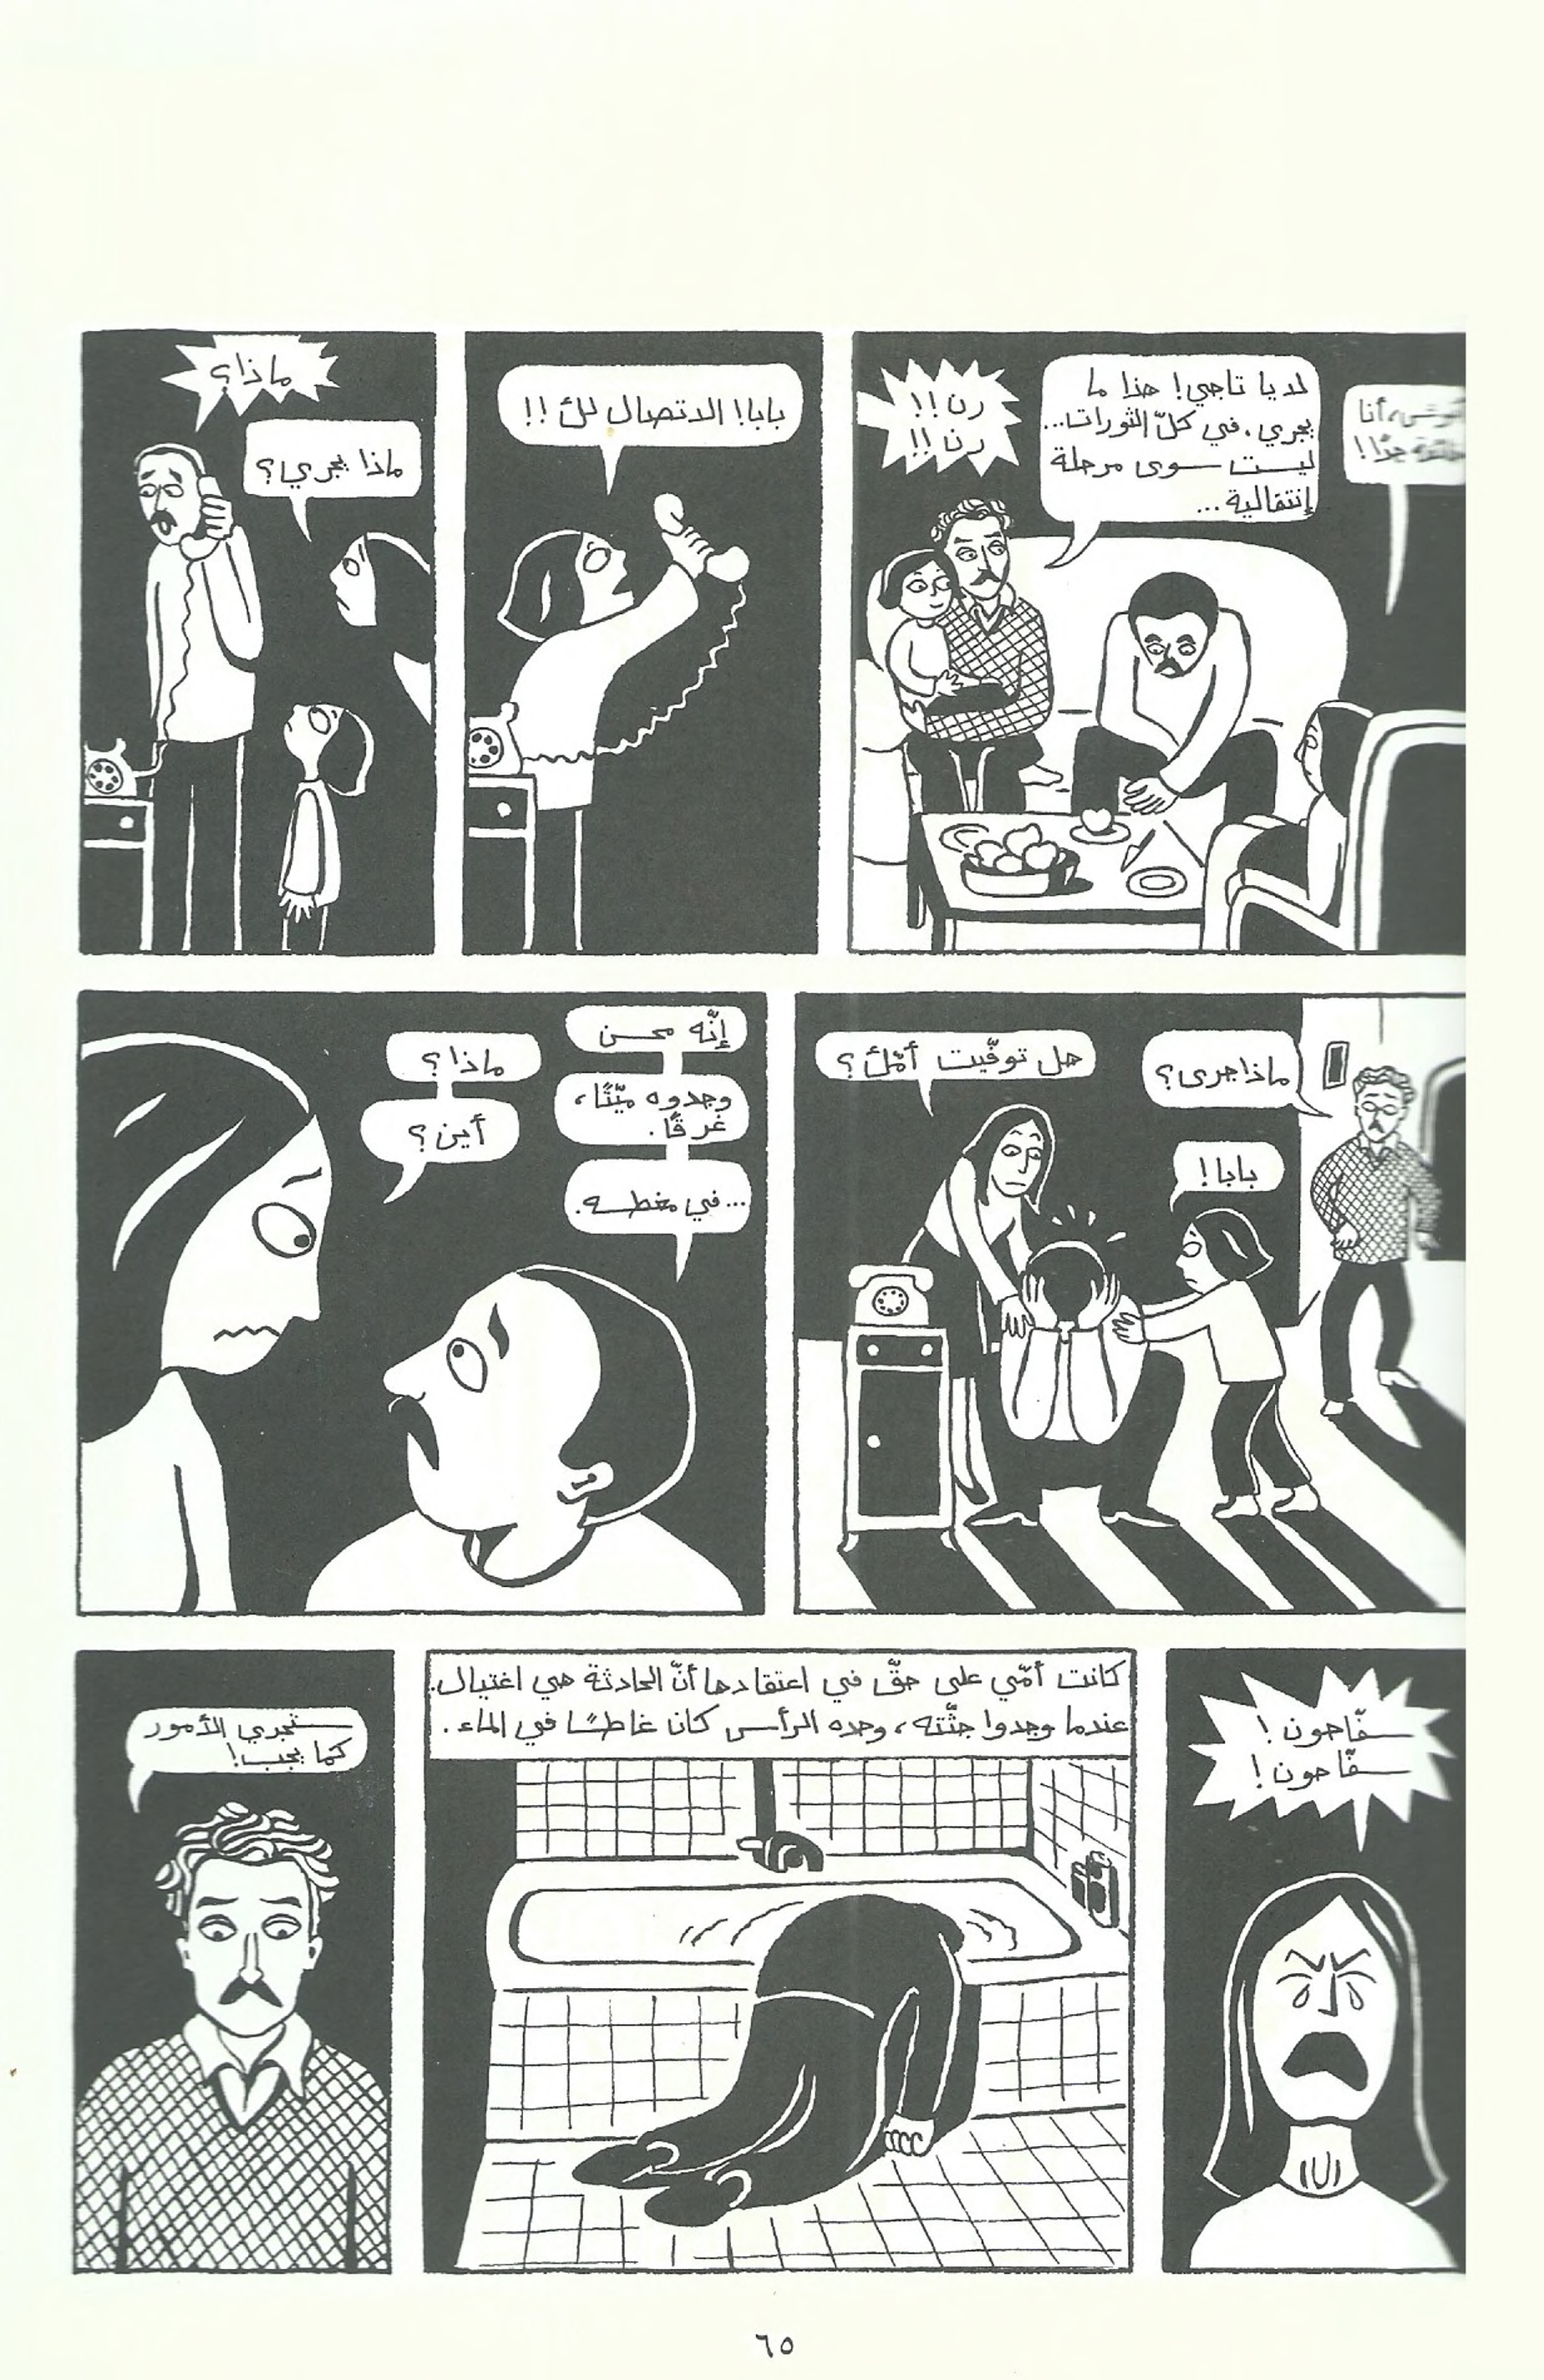 أنا
جدًا!
لا يا تاجي! هذا ما
يجري، في كلّ الثورات...
ليست سوى مرحلة
إنتقالية...
رن!!
رن!!
بابا! الاتصال لك!!
ماذا؟
ماذا يجري؟
ماذا جرى؟
بابا!
هل توفّيت أمّك؟
إنّه محسن
وجدوه ميّتًا،
غرقًا.
...في مغطسه.
ماذا؟
أين؟
سفّاحون!
سفّاحون!
كانت أمّي على حقّ في اعتقادها أنّ الحادثة هي اغتيال.
عندما وجدوا جثّته، وحده الرأس كان غاطسًا في الماء.
ستجري الأمور
كما يجب!
٦٥